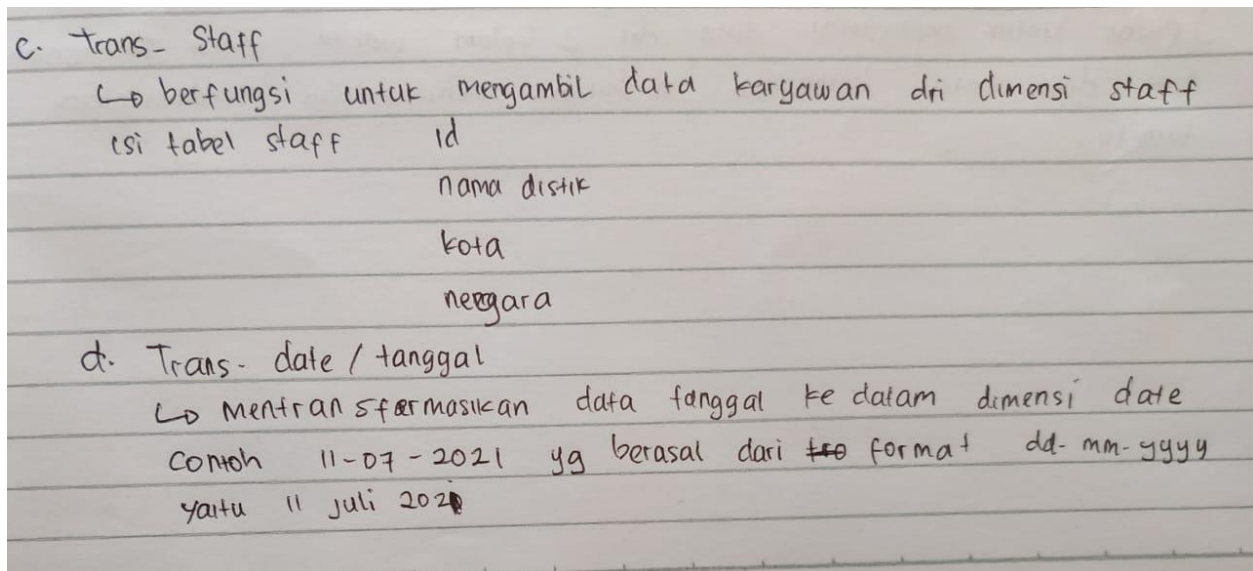 c. Trans- Staff
↳ berfungsi untuk mengambil data karyawan dri dimensi staff
isi tabel staff id
nama distik
kota
neegara
d. Trans- date / tanggal
↳ mentransfermasikan data tanggal ke dalam dimensi date
contoh 11-07-2021 yg berasal dari format dd-mm-yyyy
yaitu 11 juli 2021